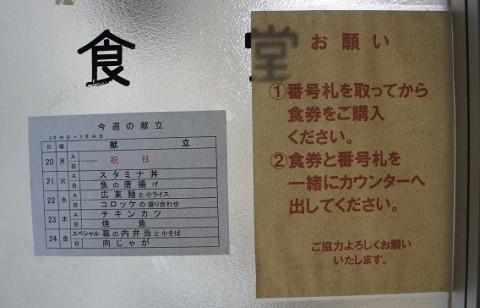 食堂
今週の献立
日 曜 献立
20 月 A 祝日
B
21 火 A スタミナ丼
B 魚の唐揚げ
22 水 A 広東麺と小ライス
B コロッケの盛り合わせ
23 木 A チキンカツ
B 焼魚
24 金 スペシャル 幕の内弁当と小そば
B 肉じゃが
お願い
①番号札を取ってから
食券をご購入
ください。
②食券と番号札を
一緒にカウンターへ
出してください。
ご協力よろしくお願い
いたします。